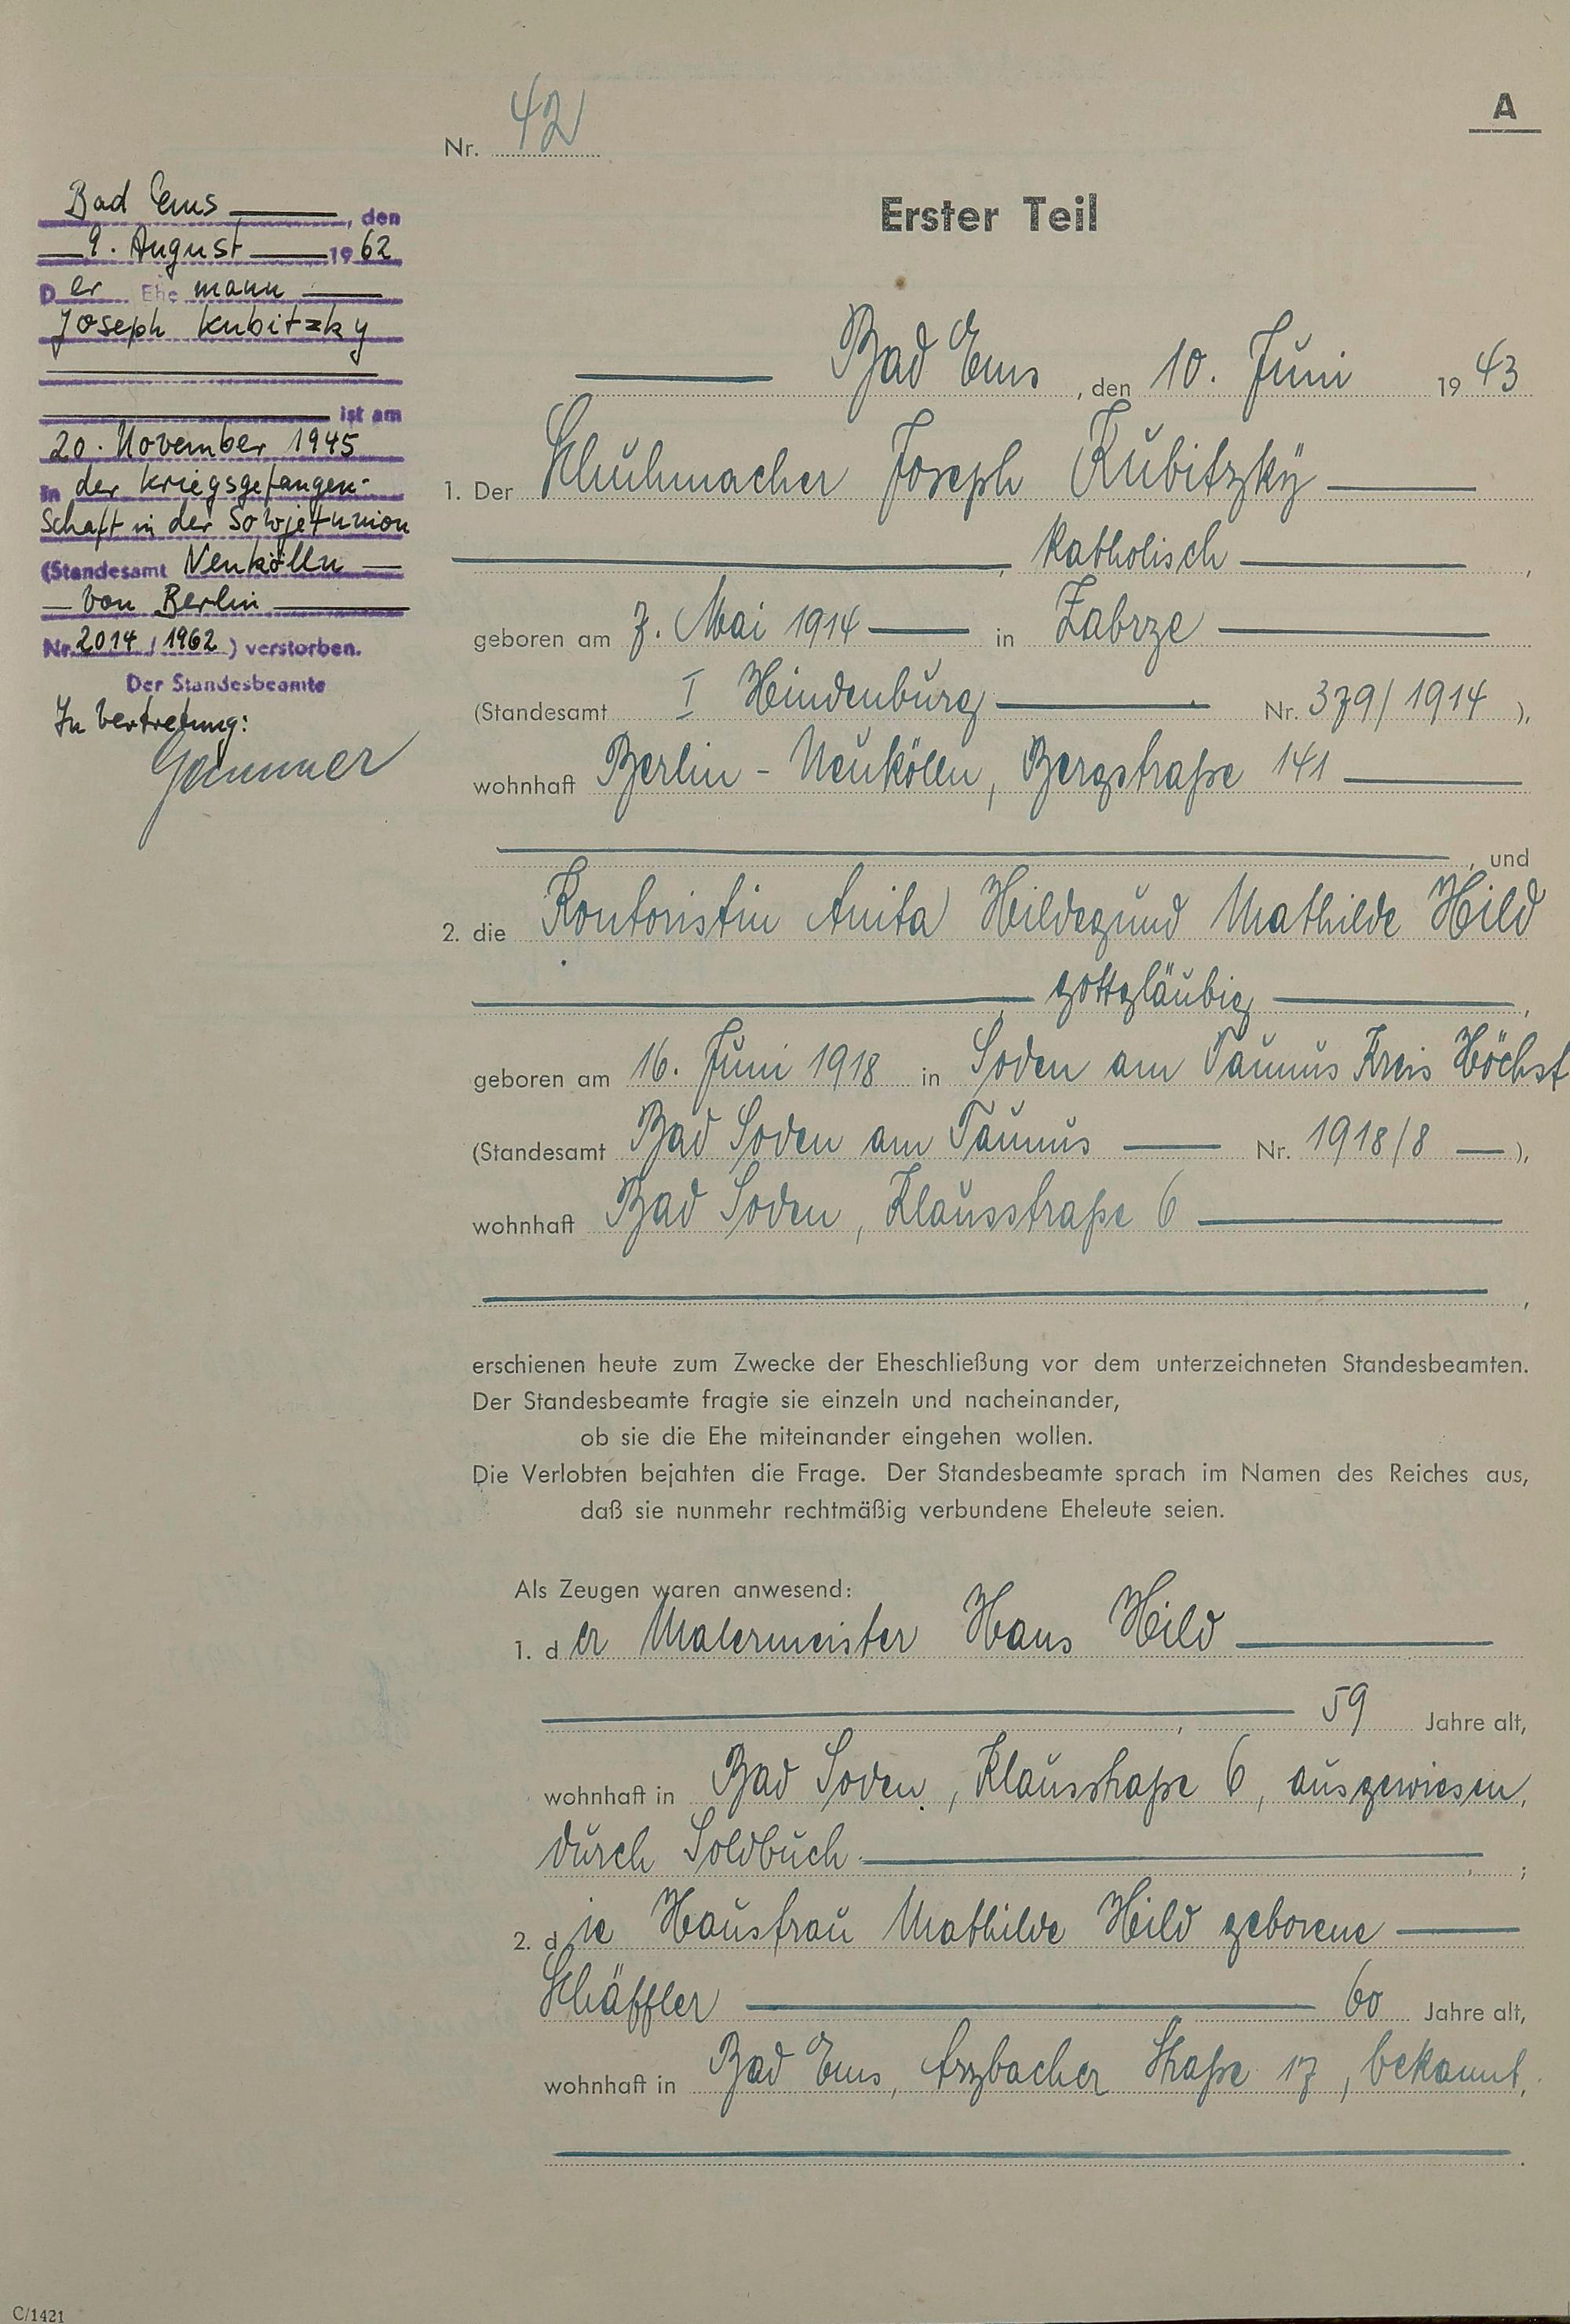 A
Nr. 42
Erster Teil
Bad Ems, den
9. August 1962
Der Ehemann
Joseph Kubitzky
ist am
20. November 1945
in der Kriegsgefangen-
schaft in der Sowjetunion
(Standesamt Neukölln
von Berlin
Nr. 2014 / 1962) verstorben.
Der Standesbeamte
In Vertretung:
Bad Ems, den 10. Juni 1943
1. Der Schuhmacher Joseph Kubitzky
, katholisch,
geboren am 7. Mai 1914 in Zabrze
(Standesamt I Hindenburg Nr. 379/1914),
wohnhaft Berlin - Neukölln, Bergstraße 141
, und
2. die Kontoristin Anita Hildegund Mathilde Hild
, gottgläubig,
geboren am 16. Juni 1918 in Soden am Taunus Kreis Höchst
(Standesamt Bad Soden am Taunus Nr. 1918/8),
wohnhaft Bad Soden, Klausstraße 6
,
erschienen heute zum Zwecke der Eheschließung vor dem unterzeichneten Standesbeamten.
Der Standesbeamte fragte sie einzeln und nacheinander,
ob sie die Ehe miteinander eingehen wollen.
Die Verlobten bejahten die Frage. Der Standesbeamte sprach im Namen des Reiches aus,
daß sie nunmehr rechtmäßig verbundene Eheleute seien.
Als Zeugen waren anwesend:
1. der Malermeister Hans Hild
, 59 Jahre alt,
wohnhaft in Bad Soden, Klausstraße 6, ausgewiesen,
durch Soldbuch. ;
2. die Hausfrau Mathilde Hild geborene
Schäffler 60 Jahre alt,
wohnhaft in Bad Ems, Arzbacher Straße 17, bekannt,
.
C/1421